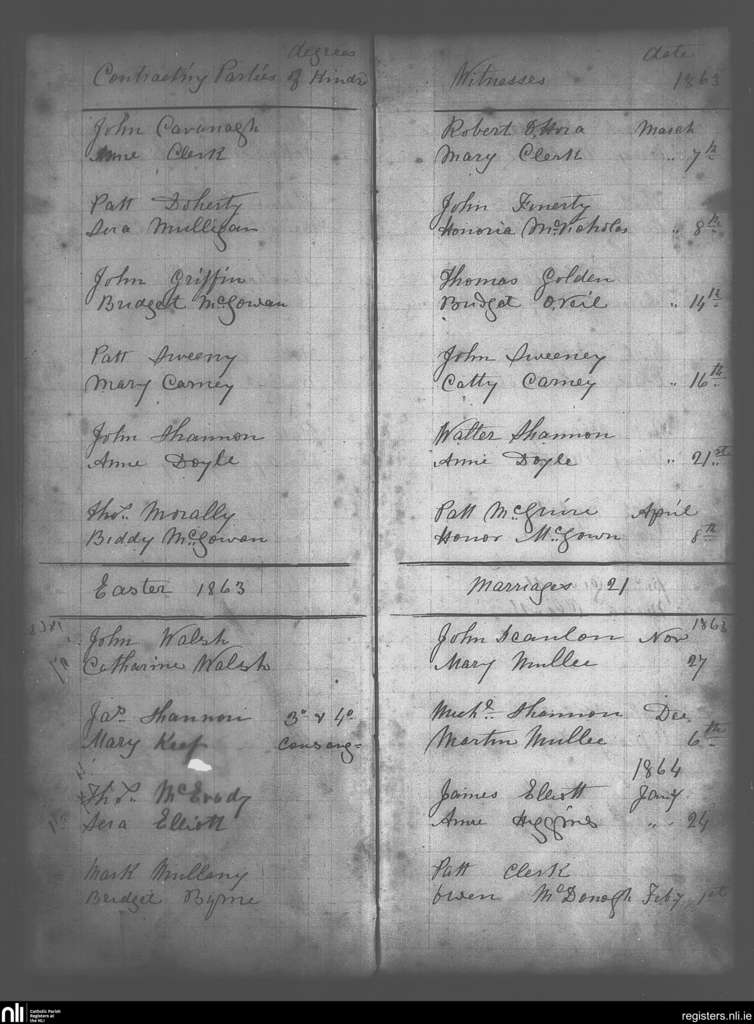 degrees date
Contracting Parties of Kindr Witnesses 1863
John Cavanagh Robert O'Hora March
Anne Clerk Mary Clerk " 7th
Patt Doherty John Finerty
Sera Mulligan Honoria McNicholas " 8th
John Griffin Thomas Golden
Bridget McGowan Bridget O'Neil " 14th
Patt Sweeny John Sweeney
Mary Carney Catty Carney " 16th
John Shannon Walter Shannon
Anne Doyle Anne Doyle " 21st
Thos. Morally Patt McGuire April
Biddy McGowan Honor McGown 8th
Easter 1863 Marriages 21
John Walsh John Scanlon Nov 1863
Catharine Walsh Mary Mullee 27
Jas. Shannon 3° & 4° Michl. Shannon Dec
Mary Keef Consang= Martin Mullee 6th
1864
Thos. McEvady James Elliott Jany
Sera Elliott Anne Higgins " 24
Mark Mullany Patt Clerk
Bridget Byrne Owen McDonogh Feby 1st
nli Catholic Parish Registers at the NLI registers.nli.ie